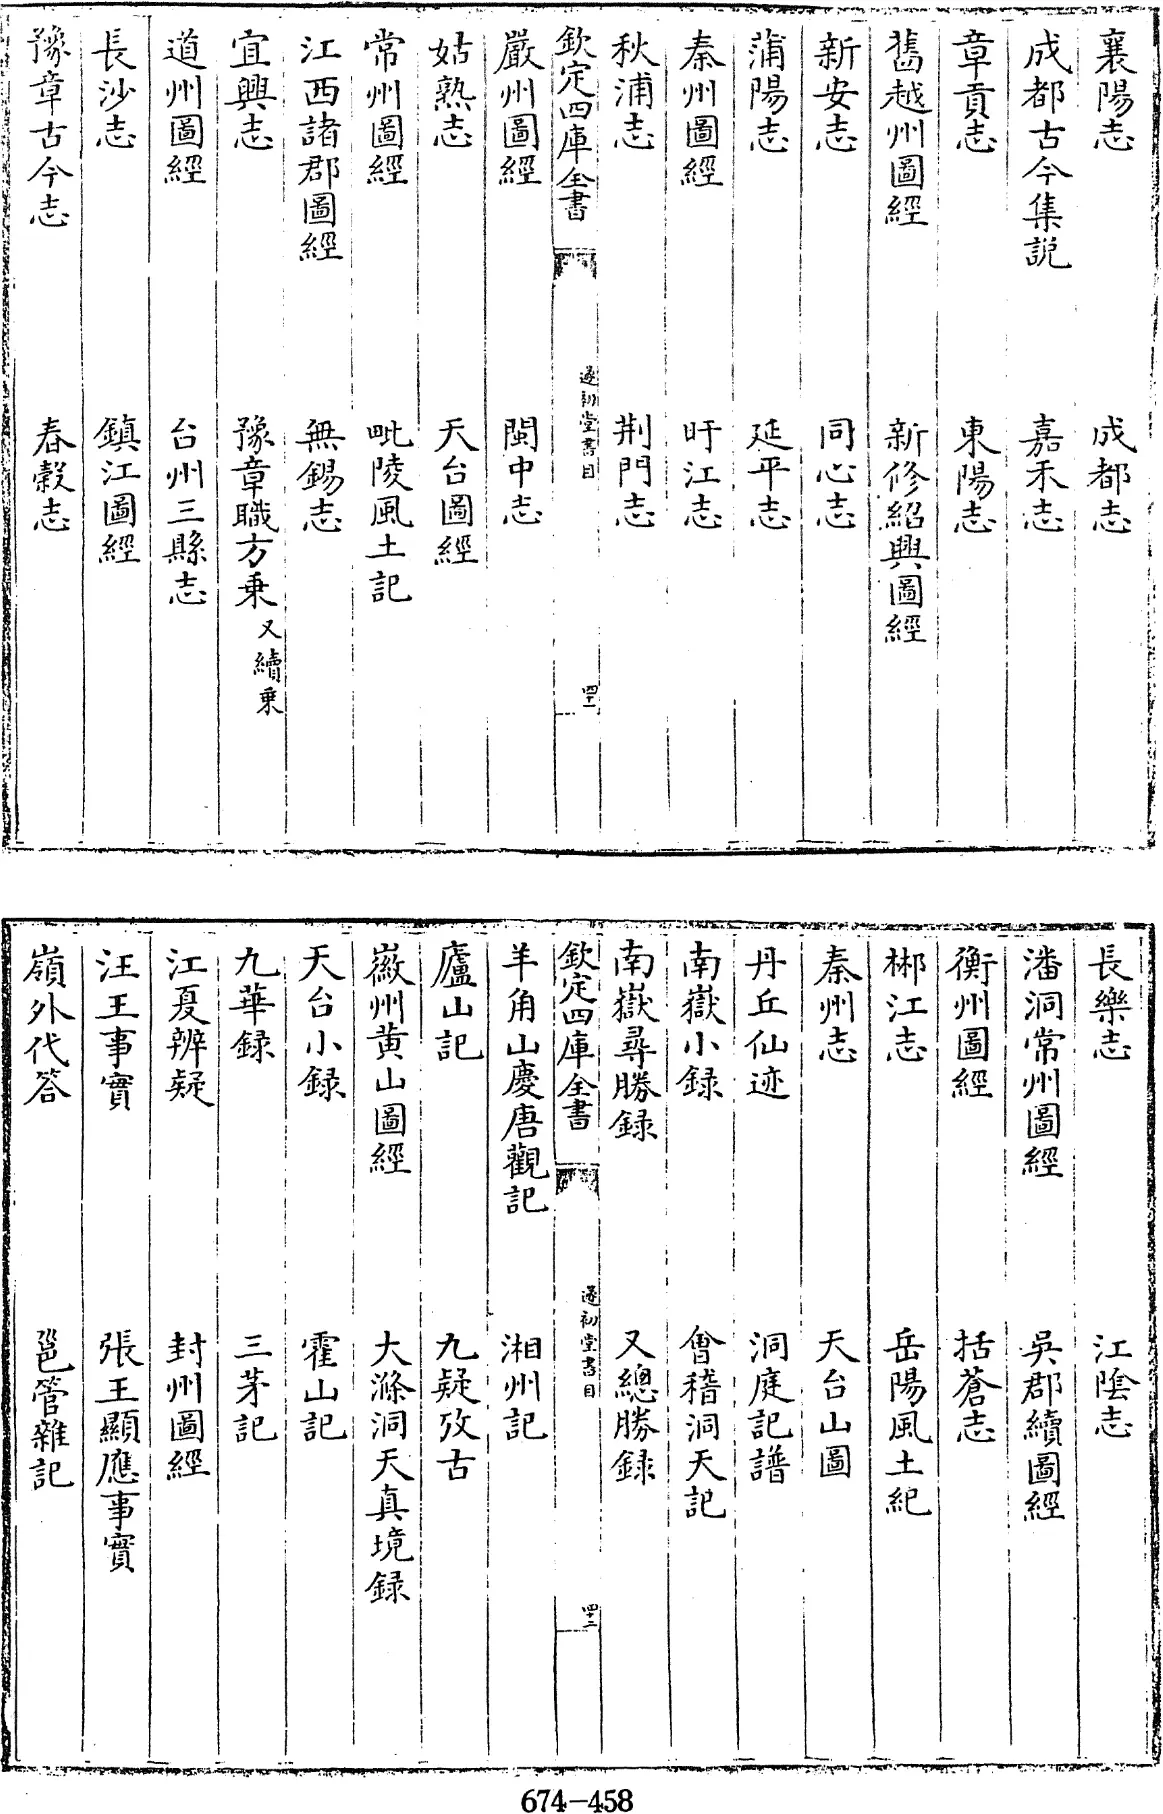 襄陽志　成都志
成都古今集説　嘉禾志
章貢志　東陽志
舊越州圖經　新修紹興圖經
新安志　同心志
蒲陽志　延平志
秦州圖經　旴江志
秋浦志　荆門志
欽定四庫全書　遂初堂書目　四十一
嚴州圖經　閩中志
姑熟志　天台圖經
常州圖經　毗陵風土記
江西諸郡圖經　無錫志
宜興志　豫章職方乗又續乗
道州圖經　台州三縣志
長沙志　鎮江圖經
豫章古今志　春穀志
長樂志　江隂志
潘洞常州圖經　吳郡續圖經
衡州圖經　括蒼志
郴江志　岳陽風土紀
秦州志　天台山圖
丹丘仙迹　洞庭記譜
南嶽小録　會稽洞天記
南嶽尋勝録　又總勝録
欽定四庫全書　遂初堂書目　四十二
羊角山慶唐觀記　湘州記
廬山記　九疑攷古
徽州黄山圖經　大滌洞天真境録
天台小録　霍山記
九華録　三茅記
江夏辨疑　封州圖經
汪王事實　張王顯應事實
嶺外代答　邕管雜記
674-458